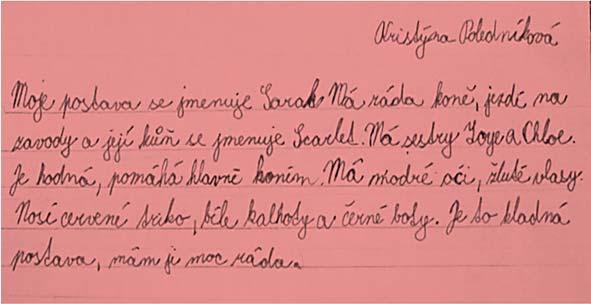 Kristýna Poledníková
Moje postava se jmenuje Sarah. Má ráda koně, jezdí na
zavody a její kůň se jmenuje Scarlet. Má sestry Joye a Chloe.
Je hodná, pomáhá hlavně koním. Má modré oči, žluté vlasy.
Nosí cervené triko, bíle kalhoty a černé boty. Je to kladná
postava, mám ji moc ráda.